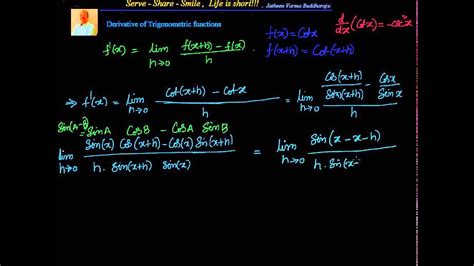 Serve - Share - Smile , Life is short!!! . Jatheem Varma Buddharaju
Derivative of Trigonometric functions
f(x) = Cotx
f'(x) = Cotx
d/dx (Cotx) = -csc²x
f'(x) = lim h→0 (f(x+h) - f(x))/h
⇒ f'(x) = lim h→0 (Cot(x+h) - Cotx)/h = lim h→0 (Cos(x+h)/Sin(x+h) - Cosx/Sinx)/h
Sin(A-B) = SinA CosB - CosA SinB
lim h→0 (Sin(x) Cos(x+h) - Cos(x) Sin(x+h))/(h. Sin(x+h) Sin(x)) = lim h→0 Sin(x-x-h)/(h. Sin(x-